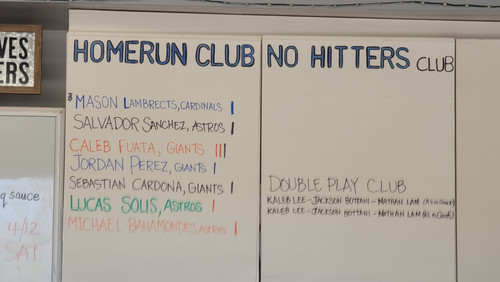 VES
ERS
HOMERUN CLUB
MASON LAMBRECTS, CARDINALS I
SALVADOR SANCHEZ, ASTROS I
CALEB FUATA, GIANTS III
JORDAN PEREZ, GIANTS I
SEBASTIAN CARDONA, GIANTS I
LUCAS SOLIS, ASTROS I
MICHAEL BAHAMONDES, ASTROS I
NO HITTERS CLUB
DOUBLE PLAY CLUB
KALEB LEE - JACKSON BOTTANI - NATHAN LAM
KALEB LEE - JACKSON BOTTANI - NATHAN LAM
q sauce
4/12
SAT.